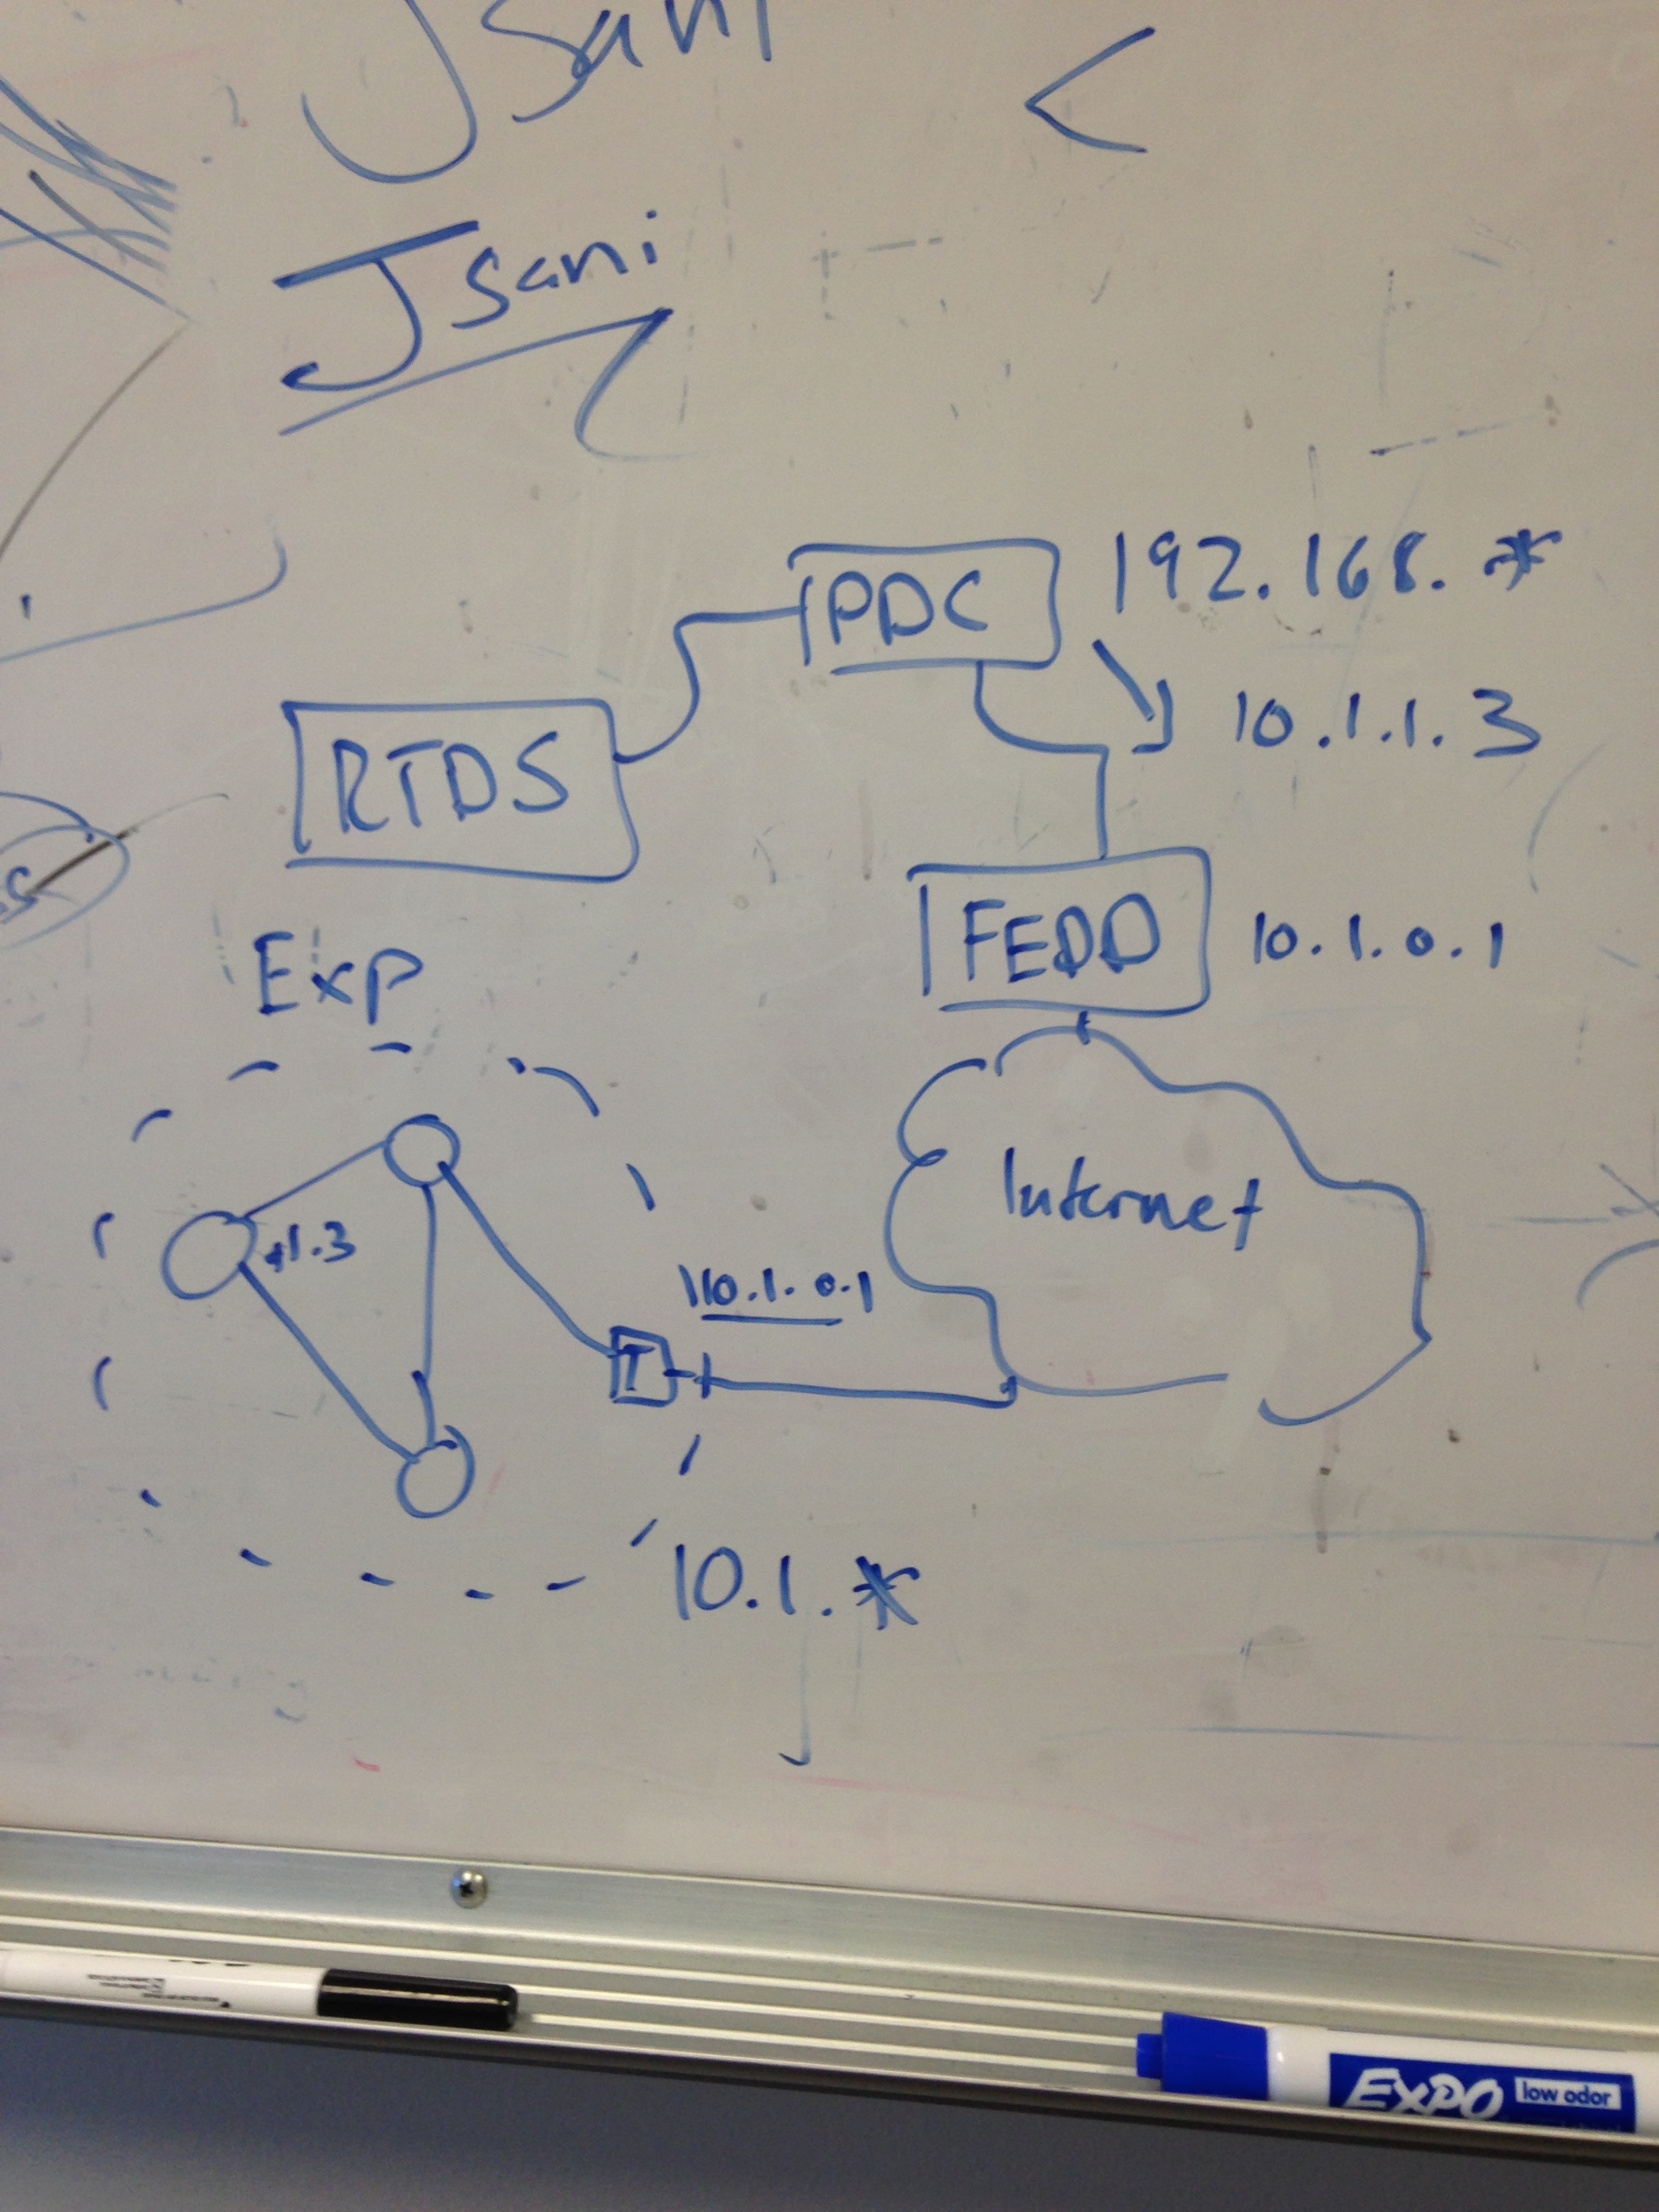 Jsani
<
Jsani
PDC
192.168.*
10.1.1.3
RTDS
FEDD
10.1.0.1
Exp
Internet
.1.3
10.1.0.1
T
10.1.*
EXPO
low odor